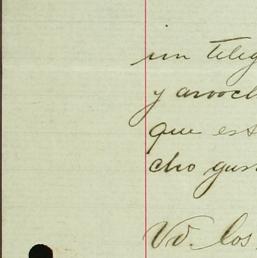 un teleg
y anoch
que est
cho gus
Vd. los